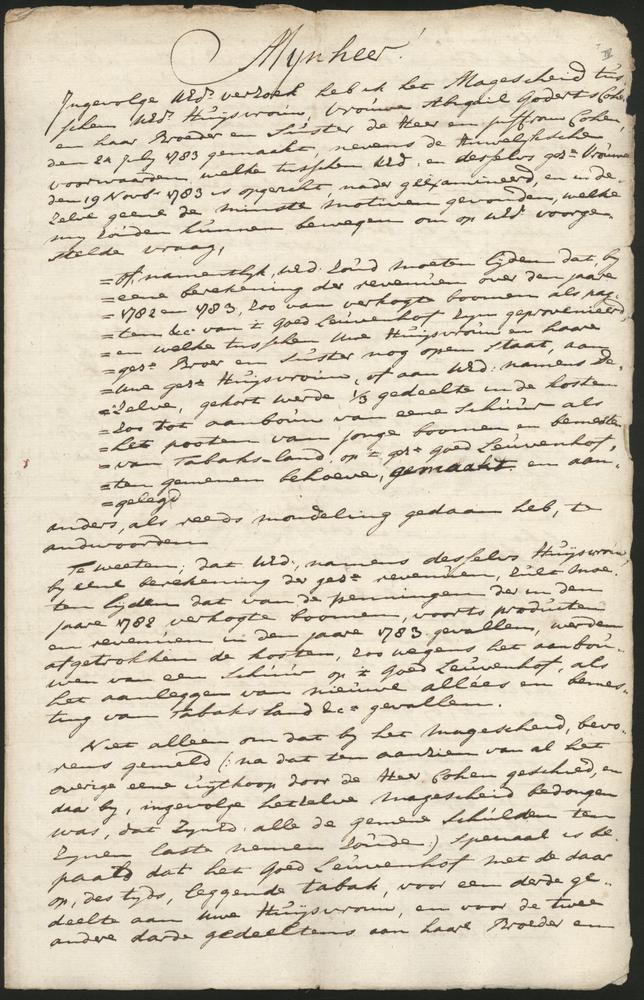 Mijnheer!
Ingevolge UEd.s verzoek heb ik het Magescheid tus-
schen UEd.s Huijsvrouw, Vrouwe Abigail Goderts Cohen
en haar Broeder en Suster de Heer en Juffrouw Cohen,
den 24 July 1783 gemaakt, nevens de Huwelijksche
voorwaarden, welke tusschen UEd. en desselvs gez.e Vrouwe
den 19 Novb.r 1783 is opgericht, nader geëxamineerd, en in de-
zelve geene de minste motiven gevonden, welke
my zouden kunnen bewegen om op UEd.s voorge-
stelde vraag,
= Of, namentlijk, UEd. zoud moeten lijden dat, by
= eene berekening der revenuen over den jaare
= 1782 en 1783, zoo van verhogte boomen als pag-
= ten &c. van 't Goed Leuvenhof zyn geprovenieerd,
= en welke tusschen Uwe Huijsvrouw en haare
= gez.e Broer en Suster nog open staat, aan
= Uwe gez.e Huijsvrouw, of aan UEd. namens De-
= zelve, gekort werde 1/3 gedeelte in de kosten
= zoo tot aanbouw van eene Schuur als
= het pooten van jonge boomen en bemesten
= van Tabaks-land op 't gez.e Goed Leuvenhof,
= ten gemenen behoeve, gemaakt en aan-
= gelegd
anders, als reeds mondeling gedaan heb, te
andwoorden
Te weeten; dat UEd., namens desselvs Huijsvrouw,
by eene berekening der gez.e revenuen, zult moe-
ten lijden dat van de penningen der in den
jaare 1782 verhogte boomen, voorts producten
en revenuen in den jaare 1783 gevallen, werden
afgetrokken de kosten, zoo wegens het aanbou-
wen van een Schuur op 't Goed Leuvenhof, als
het aanleggen van nieuwe alléés en bemes-
ting van Tabaksland &c.a gevallen.
Niet alleen om dat by het Magescheid, bevo-
rens gemeld (: na dat ten aanzien van al het
overige eene uijtkoop door de Heer Cohen geschied, en
daar by, ingevolge hetzelve Magescheid bedongen
was, dat ZynEd. alle de gemene Schulden ten
Zynen laste nemen zoude:) speciaal is be-
paald dat het Goed Leuvenhof met de daar
op, des tyds, leggende tabak, voor een derde ge-
deelte aan Uwe Huijsvrouw, en voor de twee
andere darde gedeeltens aan haare Broeder en